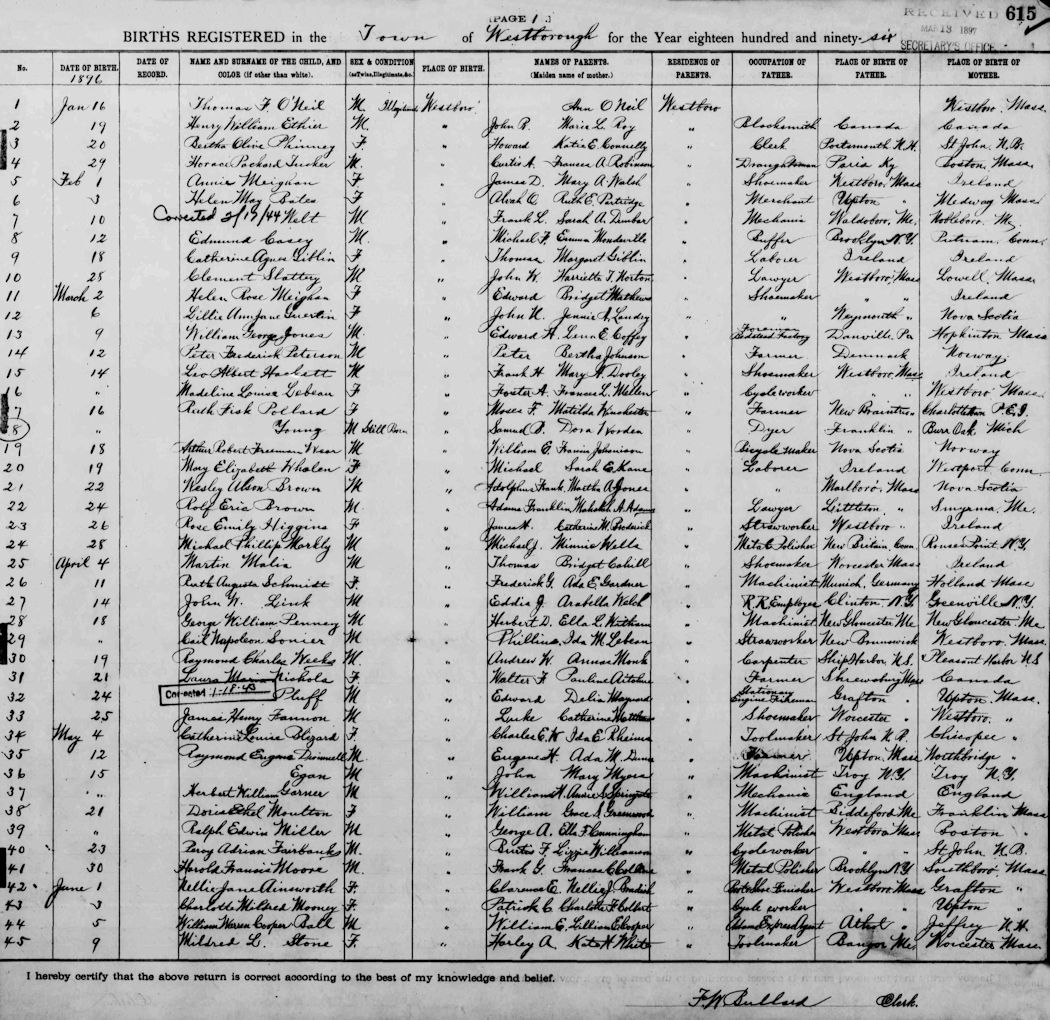 PAGE 1
RECEIVED 615
MAR 13 1897
SECRETARY'S OFFICE
BIRTHS REGISTERED in the Town of Westborough for the Year eighteen hundred and ninety-six
No. DATE OF BIRTH. 1896 DATE OF RECORD. NAME AND SURNAME OF THE CHILD, AND COLOR (if other than white). SEX & CONDITION (as Twins, Illegitimate, &c.) PLACE OF BIRTH. NAMES OF PARENTS. (Maiden name of mother.) RESIDENCE OF PARENTS. OCCUPATION OF FATHER. PLACE OF BIRTH OF FATHER. PLACE OF BIRTH OF MOTHER.
1 Jan 16 Thomas F O'Neil M Illegitimate Westboro Ann O'Neil Westboro Westboro Mass
2 19 Henry William Ethier M. " John R. Marie L. Roy " Blacksmith Canada Canada
3 20 Bertha Olive Phinney F " Howard Katie E. Connelly " Clerk Portsmouth N.H. St John N.B.
4 29 Horace Packard Tucker M. " Curtis A. Frances A. Robinson " Draughtsman Paris Ky Boston, Mass.
5 Feb 1 Annie Meighan F " James D. Mary A. Walsh " Shoemaker Westboro, Mass Ireland
6 3 Helen May Bates F " Alvah O. Ruth E. Partridge " Merchant Upton " Medway Mass
7 10 Corrected 2/17/44 Welt M " Frank L. Sarah A. Dunbar " Mechanic Waldoboro, Me. Nobleboro Me
8 12 Edmund Casey M. " Michael F. Emma " Buffer Brooklyn N.Y. Putnam, Conn.
9 18 Catherine Agnes Giblin F " Thomas Margaret Giblin " Laborer Ireland Ireland
10 28 Clement Slattery M " John W. Harriette T. Horton " Lawyer Westboro Mass Lowell Mass
11 March 2 Helen Rose Meighan F " Edward Bridget Mathews " Shoemaker " " Ireland
12 6 Lillie Ann Jane Guertin F " John N. Jennie A. Landry " " Weymouth " Nova Scotia
13 9 William George Jones M. " Edward H. Lena E. Coffey " Foreman Bedstead Factory Danville, Pa Hopkinton Mass
14 12 Peter Frederick Peterson M " Peter Bertha Johnson " Farmer Denmark Norway
15 14 Leo Albert Hackett M " Frank H. Mary A. Dooley " Shoemaker Westboro, Mass Ireland
16 " Madeline Louise Lebeau F " Foster A. Frances L. Mellen " Cycleworker Westboro Mass
17 16 Ruth Fisk Pollard F " Moses F. Matilda Winchester " Farmer New Braintree " Charlottetown P.E.I.
18 " Young M Still Born " Samuel B. Dora Worden " Dyer Franklin " Burr Oak Mich
19 18 Arthur Robert Freeman M " William E. " Bicycle Maker Nova Scotia Norway
20 19 Mary Elizabeth Whalen F " Michael Sarah E. Kane " Laborer Ireland Westport Conn
21 22 Wesley Alson Brown M " Adolphus Frank Martha A. Jones " " Marlboro, Mass Nova Scotia
22 24 Rolf Eric Brown M. " Adams Franklin A. Adams " Lawyer Littleton " Smyrna Me.
23 26 Rose Emily Higgins F " James H. Catherine M. Broderick " Strawworker Westboro " Ireland
24 28 Michael Phillip Markly M " Michael J. Minnie Wells " Metal Polisher New Britain, Conn. Rouses Point N.Y.
25 April 4 Martin Malia M " Thomas Bridget Cahill " Shoemaker Worcester Mass Ireland
26 11 Ruth Augusta Schmidt F " Frederick G. Ada E. Gardner " Machinist Munich, Germany Holland Mass
27 14 John W. Link M " Eddie J. Arabella Welch " R.R. Employee Clinton, N.Y. Greenville N.Y.
28 18 George William Penney M " Herbert D. Ella L. Witham " Machinist New Gloucester Me New Gloucester Me
29 " Napoleon Sonier M " Phillias Ida M. Lebeau " Strawworker New Brunswick Westboro Mass
30 19 Raymond Charles Weeks M. " Andrew W. Annas Monk " Carpenter Ship Harbor, N.S. Pleasant Harbor N.S
31 21 Laura Maria Nichols F " Walter F. Pauline " Farmer Shrewsbury Mass Canada
32 24 Corrected 1-18-43 Pluff M " Edward Delia Maynard " Stationary Engine Fireman Grafton " Upton, Mass.
33 25 James Henry Fannon M " Luke Catherine " Shoemaker Worcester " Westboro "
34 May 4 Catherine Louise Blizard F " Charles E. W. Ida E. Rheims " Toolmaker St John N.B. Chicopee "
35 12 Raymond Eugene M. " Eugene H. Ada M. " Farmer Upton, Mass Northbridge "
36 15 Egan M " John Mary Myers " Machinist Troy N.Y. Troy N.Y.
37 " Herbert William Garner M " William H. Annie S. " Mechanic England England
38 21 Doris Ethel Moulton F " William Grace S. Greenwood " Machinist Biddeford Me Franklin Mass
39 " Ralph Edwin Miller M " George A. Ella F. Cunningham " Metal Polisher Westboro Mass Boston "
40 23 Percy Adrian Fairbanks M. " F. Lizzie Williamson " Cycleworker " " St John N.B.
41 30 Harold Francis Moore M. " Frank G. Frances " Metal Polisher Brooklyn N.Y. Southboro Mass
42 June 1 Nellie Jane Ainsworth F " Clarence E. Nellie J. " Finisher Westboro Mass Grafton "
43 3 Charlotte Mildred Mooney F " Patrick C. Charlotte F. Colbert " Cycle worker " " Upton "
44 5 William Warren Cooper Ball M " William E. Lillian E. Cooper " Adams Express Agent Athol " Jaffrey N.H.
45 9 Mildred L. Stone F " Harley A. Kate H. White " Toolmaker Bangor Me Worcester Mass
I hereby certify that the above return is correct according to the best of my knowledge and belief.
F. W. Bullard Clerk.